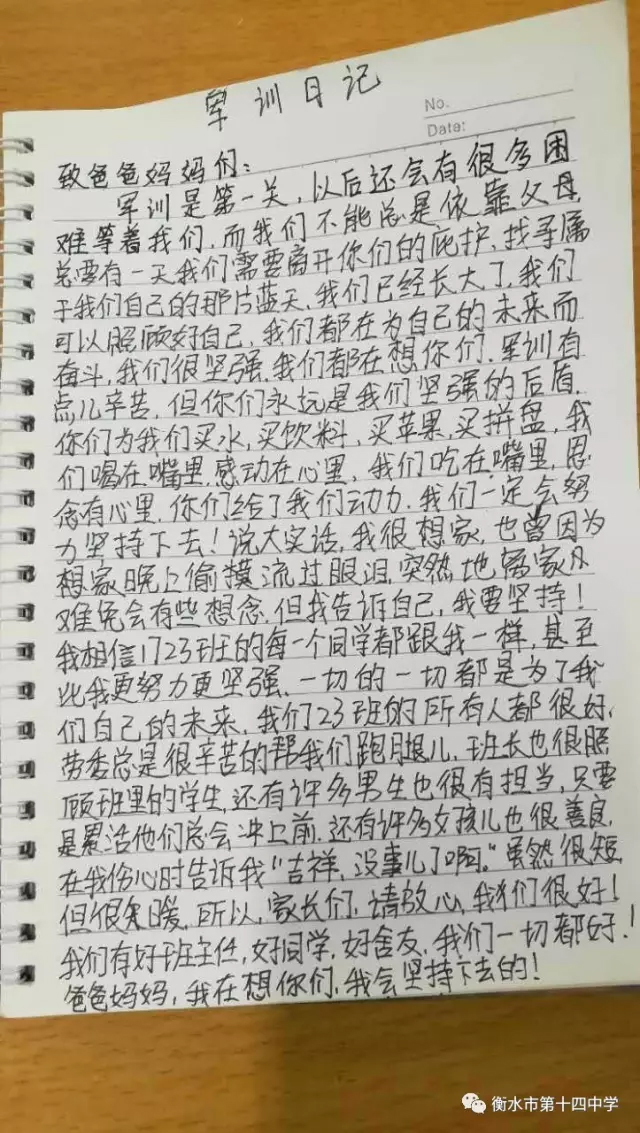 军训日记
No.
Date:
致爸爸妈妈们:
军训是第一关,以后还会有很多困
难等着我们,而我们不能总是依靠父母,
总要有一天我们需要离开你们的庇护,找寻属
于我们自己的那片蓝天,我们已经长大了,我们
可以照顾好自己,我们都在为自己的未来而
奋斗,我们很坚强,我们都在想你们,军训有
点儿辛苦,但你们永远是我们坚强的后盾,
你们为我们买水,买饮料,买苹果,买拼盘,我
们喝在嘴里,感动在心里,我们吃在嘴里,恩
念有心里,你们给了我们动力,我们一定会努
力坚持下去!说大实话,我很想家,也曾因为
想家晚上偷摸流过眼泪,突然地离家
难免会有些想念,但我告诉自己,我要坚持!
我相信1723班的每一个同学都跟我一样,甚至
比我更努力更坚强,一切的一切都是为了我
们自己的未来,我们23班的所有人都很好,
劳委总是很辛苦的帮我们跑腿儿,班长也很照
顾班里的学生,还有许多男生也很有担当,只要
是累活他们总会冲上前,还有许多女孩儿也很善良,
在我伤心时告诉我“吉祥,没事儿了啊。”虽然很短,
但很知暖,所以,家长们,请放心,我们很好!
我们有好班主任,好同学,好舍友,我们一切都好!
爸爸妈妈,我在想你们,我会坚持下去的!
衡水市第十四中学